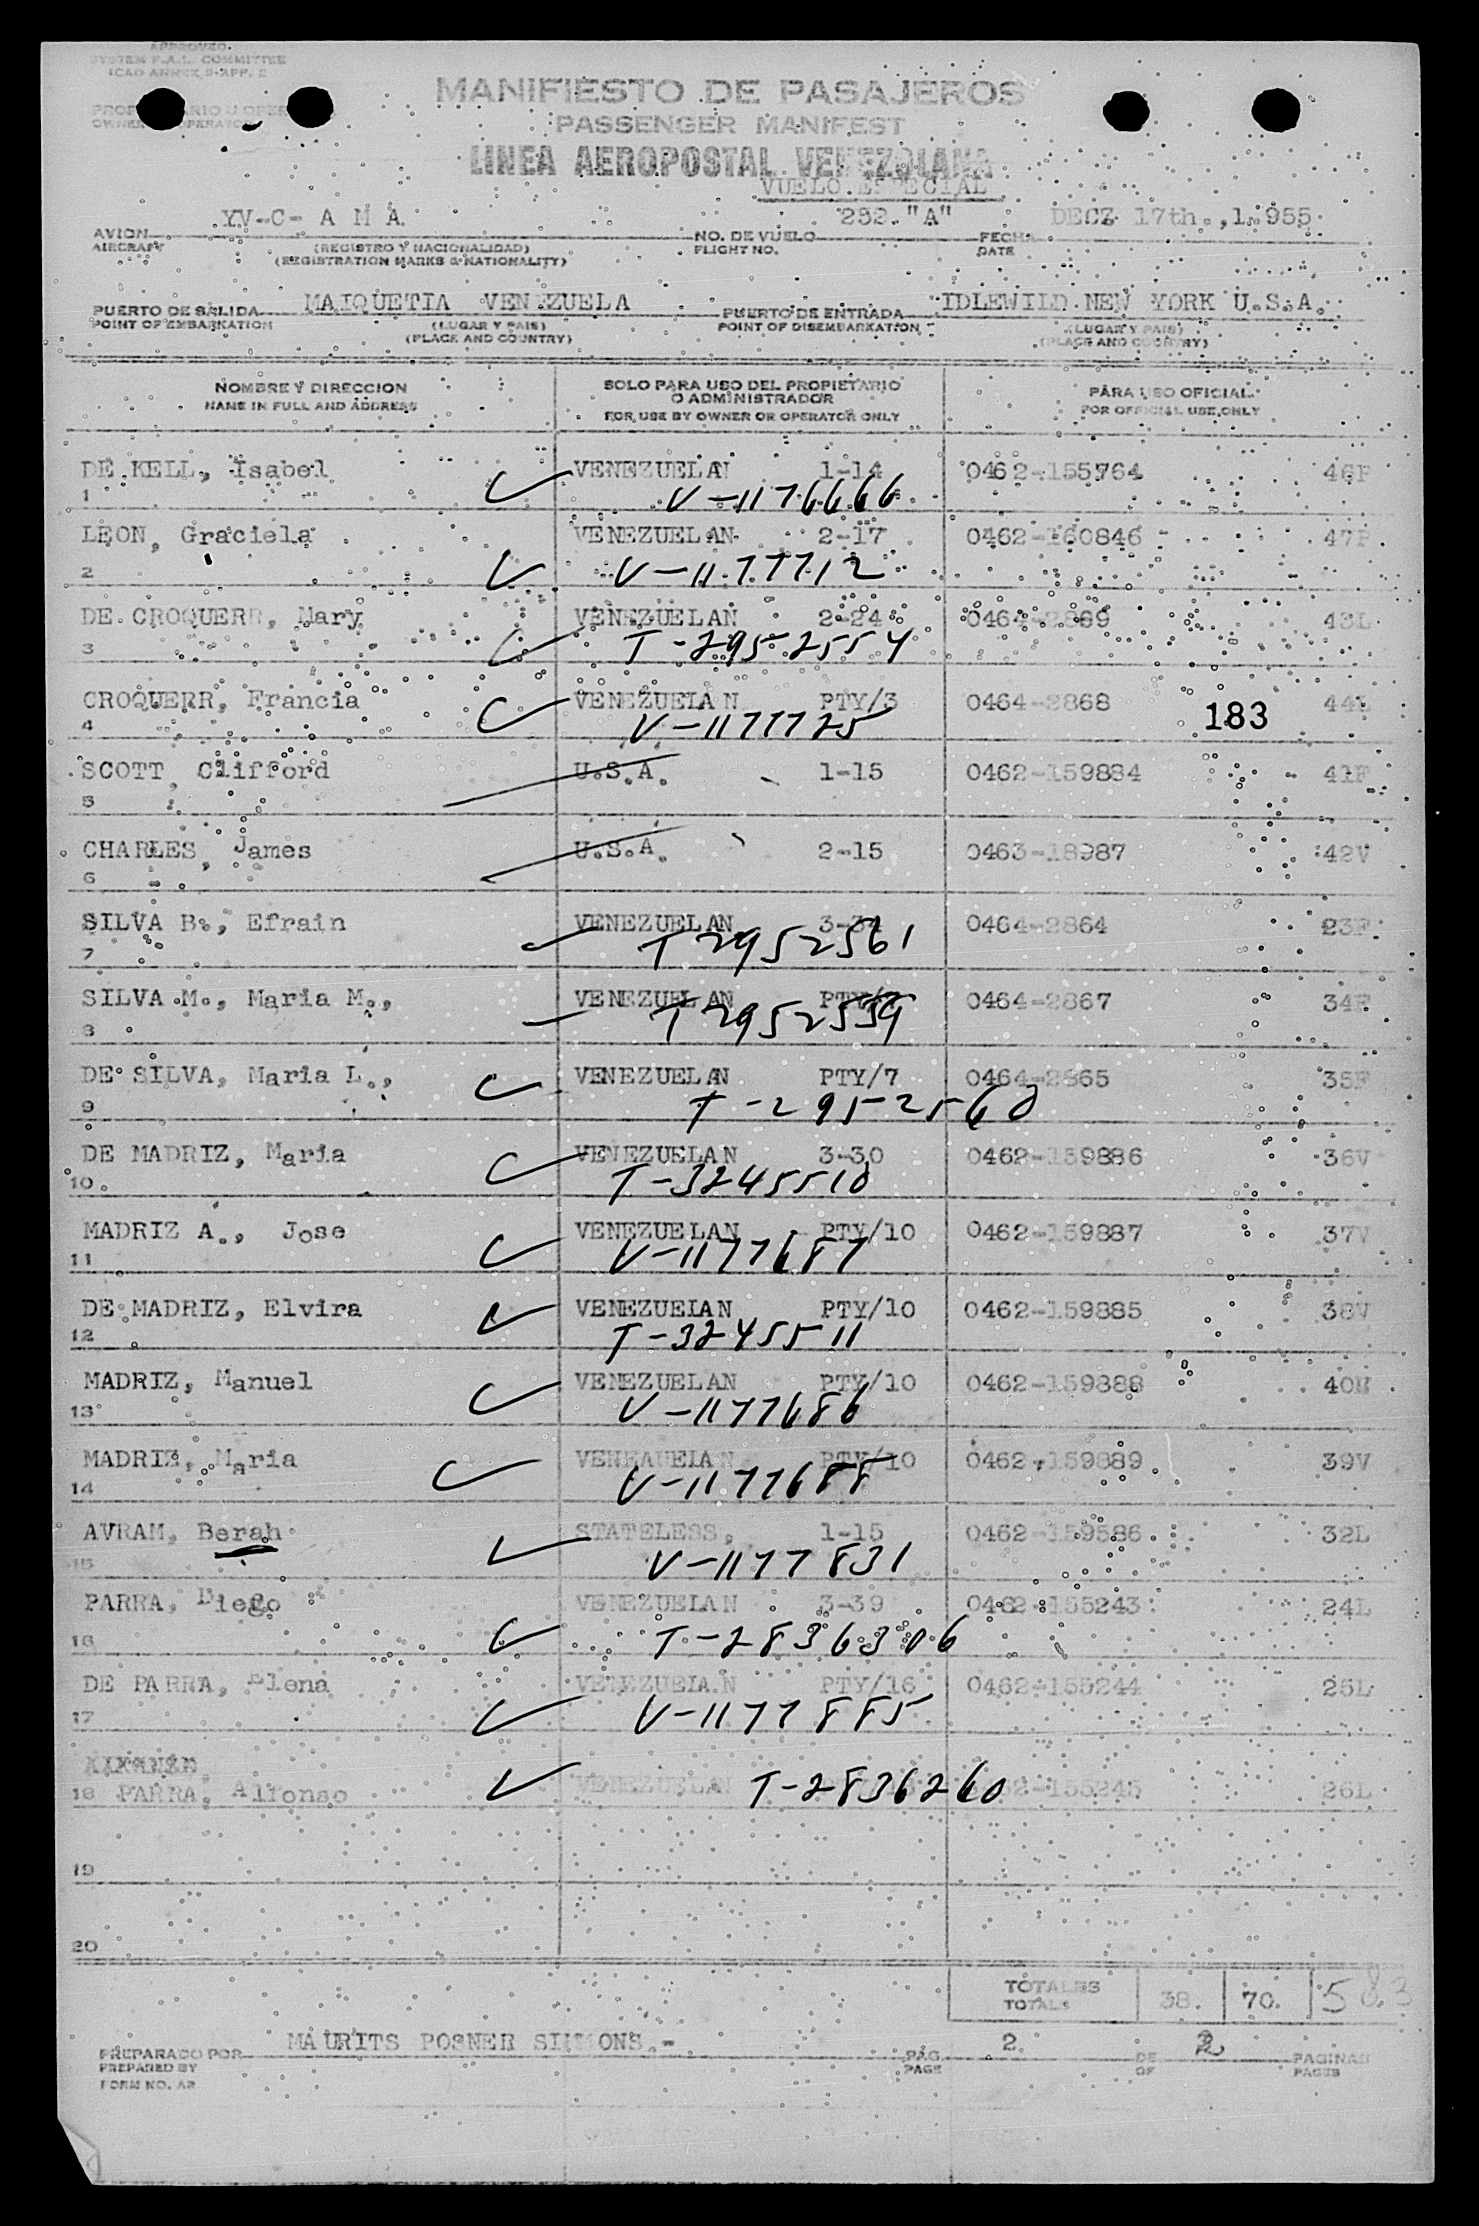 APPROVED.
SYSTEM F.A.L. COMMITTEE
ICAO ANNEX 9-APP. 2
MANIFIESTO DE PASAJEROS
PASSENGER MANIFEST
LINEA AEROPOSTAL VENEZOLANA
VUELO ESPECIAL
YV-C- A M A 252 "A" DECZ 17th.,1.955
AVION NO. DE VUELO FECHA
AIRCRAFT (REGISTRO Y NACIONALIDAD) FLIGHT NO. DATE
(REGISTRATION MARKS & NATIONALITY)
MAIQUETIA VENEZUELA IDLEWILD NEW YORK U.S.A.
PUERTO DE SALIDA PUERTO DE ENTRADA
POINT OF EMBARKATION (LUGAR Y PAIS) POINT OF DISEMBARKATION (LUGAR Y PAIS)
(PLACE AND COUNTRY) (PLACE AND COUNTRY)
NOMBRE Y DIRECCION SOLO PARA USO DEL PROPIETARIO PARA USO OFICIAL
NAME IN FULL AND ADDRESS O ADMINISTRADOR FOR OFFICIAL USE ONLY
FOR USE BY OWNER OR OPERATOR ONLY
DE KELL, Isabel VENEZUELAN 1-14 0462-155764 46F
1 V-1176666
LEON, Graciela VENEZUELAN 2-17 0462-160846 47F
2 V-1177712
DE CROQUERR, Mary VENEZUELAN 2-24 0464-2869 43L
3 T-2952554
CROQUERR, Francia VENEZUELAN PTY/3 0464-2868 44L
4 V-1177725 183
SCOTT, Clifford U.S.A. 1-15 0462-159884 41F
5
CHARLES, James U.S.A. 2-15 0463-18987 42V
6
SILVA B., Efrain VENEZUELAN 3-34 0464-2864 23F
7 T2952561
SILVA M., Maria M., VENEZUELAN PTY/7 0464-2867 34F
8 T2952559
DE SILVA, Maria L., VENEZUELAN PTY/7 0464-2865 35F
9 T-2952560
DE MADRIZ, Maria VENEZUELAN 3-30 0462-159886 36V
10 T-3245510
MADRIZ A., Jose VENEZUELAN PTY/10 0462-159887 37V
11 V-1177687
DE MADRIZ, Elvira VENEZUELAN PTY/10 0462-159885 38V
12 T-3245511
MADRIZ, Manuel VENEZUELAN PTY/10 0462-159888 40
13 V-1177686
MADRIZ, Maria VENEZUELAN PTY/10 0462-159889 39V
14 V-1177688
AVRAM, Berah STATELESS, 1-15 0462-159586 32L
15 V-1177831
PARRA, Diego VENEZUELAN 3-39 0462-155243 24L
16 T-2836306
DE PARRA, Elena VENEZUELAN PTY/16 0462-155244 25L
17 V-1177885
18 PARRA, Alfonso VENEZUELAN T-2836260 62-155245 26L
19
20
TOTALES 38. 70. 583
TOTALS
MAURITS POSNER SIMMONS.- 2. 2
PREPARADO POR PAG. DE PAGINAS
PREPARED BY PAGE OF PAGES
FORM NO. AR